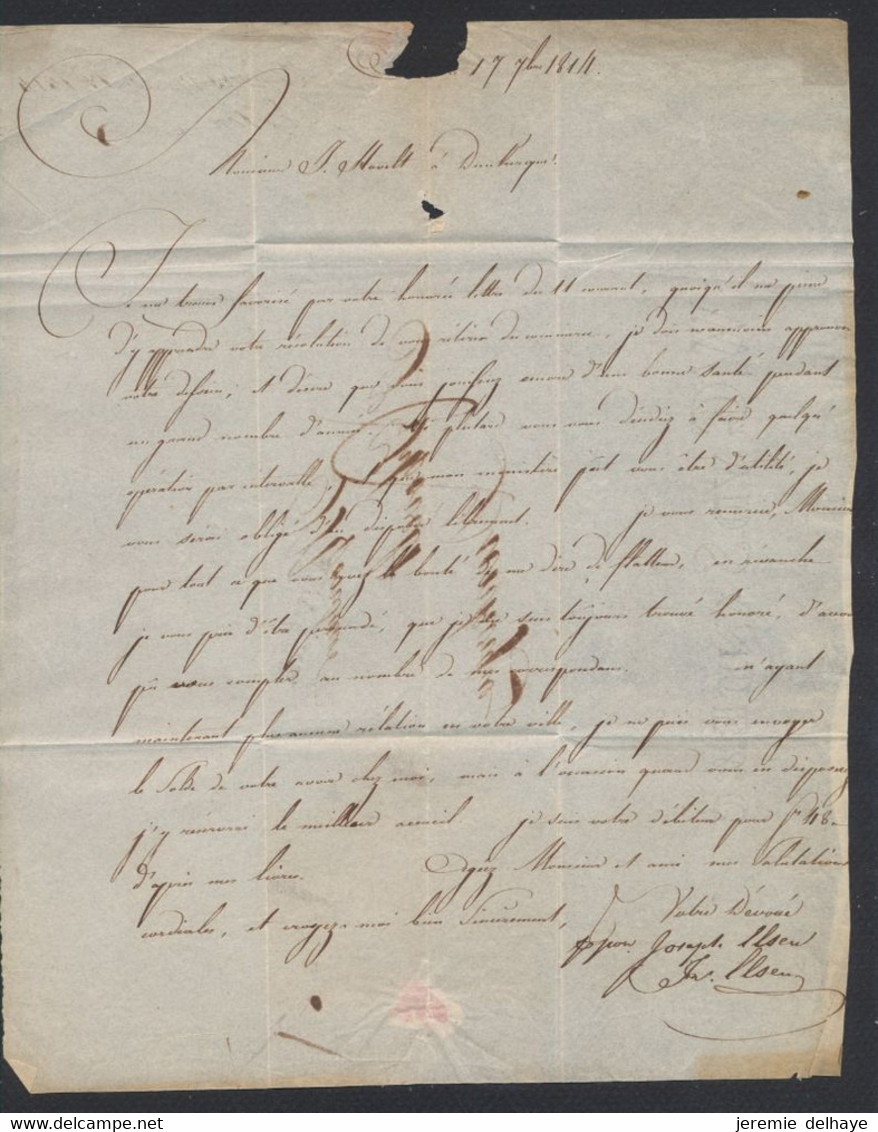 17 7bre 1814.
Monsieur J. à Dunkerque.
Je me trouve favorisé par votre honorée lettre du 11 courant, quoiqu'il me peine
d'y apprendre votre résolution de vous rétirer du commerce, je dois neanmoins approuver
votre dessein, et désire que vous jouissiez encore d'une bonne santé pendant
un grand nombre d'années. Si plutard vous vous décidez à faire quelqu'
opération par intervalle, et que mon ministère peut vous être d'utilité, je
vous serai obligé d'en disposer librement. je vous remercie, Monsieur
pour tout ce que vous avez la bonté de me dire de flatteur, en revanche
je vous prie d'être persuadé, que je me suis toujours trouvé honoré, d'avoir
pû vous compter au nombre de mes corréspondans. n'ayant
maintenant plus aucune rélation en votre ville, je ne puis vous envoyer
le solde de votre avoir chez moi, mais à l'occasion quand vous en disposez
j'y réserverai le meilleur accueil je suis votre débiteur pour 48
d'après mes livres. Agréez Monsieur et ami mes salutations
cordiales, et croyez-moi bien sincèrement,
Votre Dévoué
ppon Joseph Elsen
Elsen
jeremie delhaye